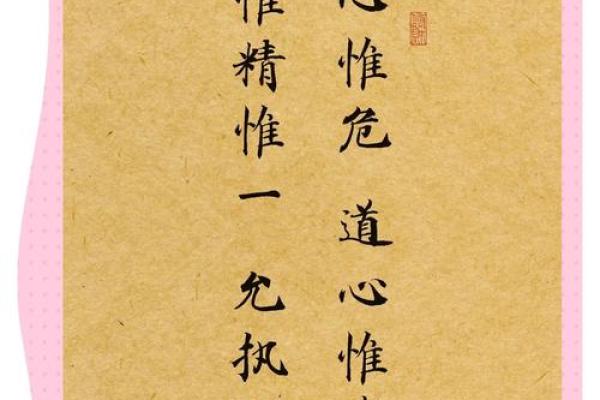 心惟危 道心惟
惟精惟一 允执